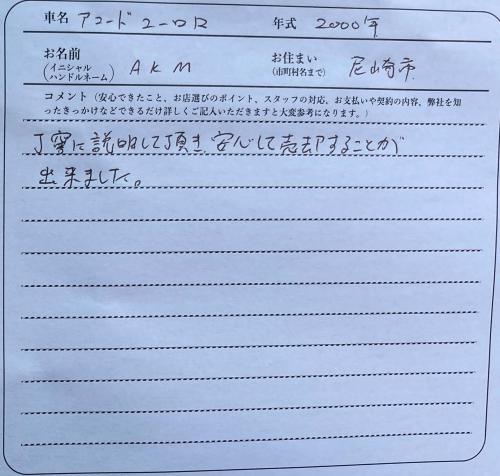 車名 アコード ユーロR 年式 2000年
お名前 (イニシャル ハンドルネーム) AKM お住まい (市町村名まで) 尼崎市
コメント(安心できたこと、お店選びのポイント、スタッフの対応、お支払いや契約の内容、弊社を知
ったきっかけなどできるだけ詳しくご記入いただきますと大変参考になります。)
丁寧に説明して頂き、安心して売却することが
出来ました。